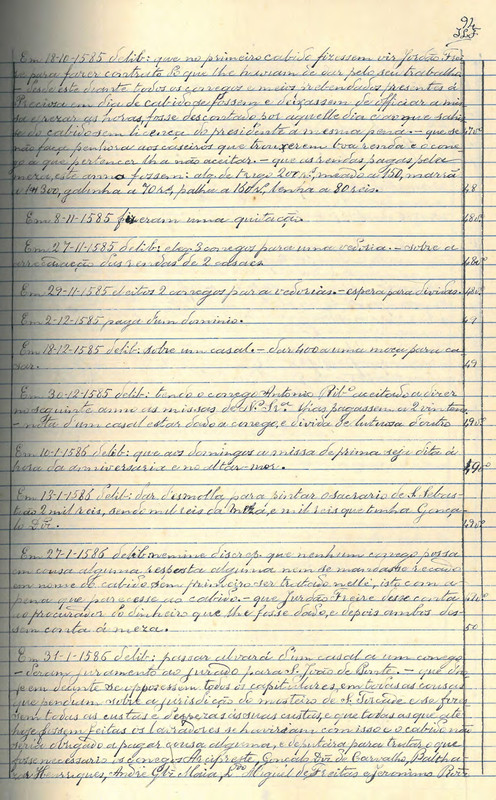 94
Em 18-10-1585 delib: que no primeiro cabido fizessem vir Jordão Frei-
re para fazer contrato do que lhe haviam de dar pelo seu trabalho
- desde este deante todos os conegos e meios prebendados presentes á
Preciosa em dia de cabido, se fossem e deixassem de officiar a mis-
sa e rezar as horas, fosse descontado por aquelle dia e o que sahis-
se do cabido sem licença do presidente a mesma pena. - que se 470
não faça penhora aos caseiros que trouxerem boa renda e o cone-
go a que pertencer lha não aceitar. - que as rendas pagas pela
mera, este anno fossem: alq. de trigo 200 rs, meado a 150, marrã
300, galinha a 70 rs, palha a 160 rs, lenha a 80 reis. 48
Em 8-11-1585 fizeram uma quitação. 480
Em 27-11-1585 delib: eleg. 3 conegos para uma vedoria. - sobre a
arrematação das rendas de 2 casaes. 480
Em 29-11-1585 eleitos 2 conegos para vedorias. - espera para dividas. 480
Em 2-12-1585 paga d'um dominio. 49
Em 18-12-1585 delib: sobre um casal. - dar 400 a uma moça para ca-
sar. 49
Em 30-12-1585 delib: tendo o conego Antonio Ribº aceitado a dizer
no seguinte anno as missas de N. Srª lhas pagassem a 2 vintens
- meta d'um casal estar dado a conego, e divida de lutuosa d'outro 490
Em 10-1-1586 delib: que aos domingos a missa de prima seja dita á
hora da anniversaria e no altar-mor. 490
Em 13-1-1586 delib: dar d'esmolla para pintar o sacrario de S. Sebas-
tião 2 mil reis, sendo mil reis da meza, e mil reis que tinha Gonça-
lo Diz. 490
Em 27-1-1586 delib. nemine discrep. que nenhum conego possa
em cousa alguma resposta alguma nem se mandasse recado
em nome do cabido, sem primeiro ser tratado nelle, isto com a
pena que parecesse ao cabido. - que Jurdão Freire desse conta 470
ao procurador do dinheiro que lhe fosse dado, e depois ambos des-
sem conta á meza. 50
Em 31-1-1586 delib: passar alvará d'um casal a um conego
- deram juramento ao jurado para S. João de Ponte. - que d'ho-
je em deante se oppozessem todos os capitulares, em todas as cousas
que pendem sobre a jurisdição do mosteiro de S. Torcade e se fizes-
sem todas as custas e despezas ás suas custas, e que todas as que até
hoje fossem feitas os lavradores se haveriam com isso e o cabido não
seria obrigado a pagar cousa alguma, e deputára para tratar o que
fosse necessario os conegos Arcipreste, Gonçalo Diz de Carvalho, Baltha-
zar Henriques, André Glz Maia, Miguel de Freitas e Jeronimo